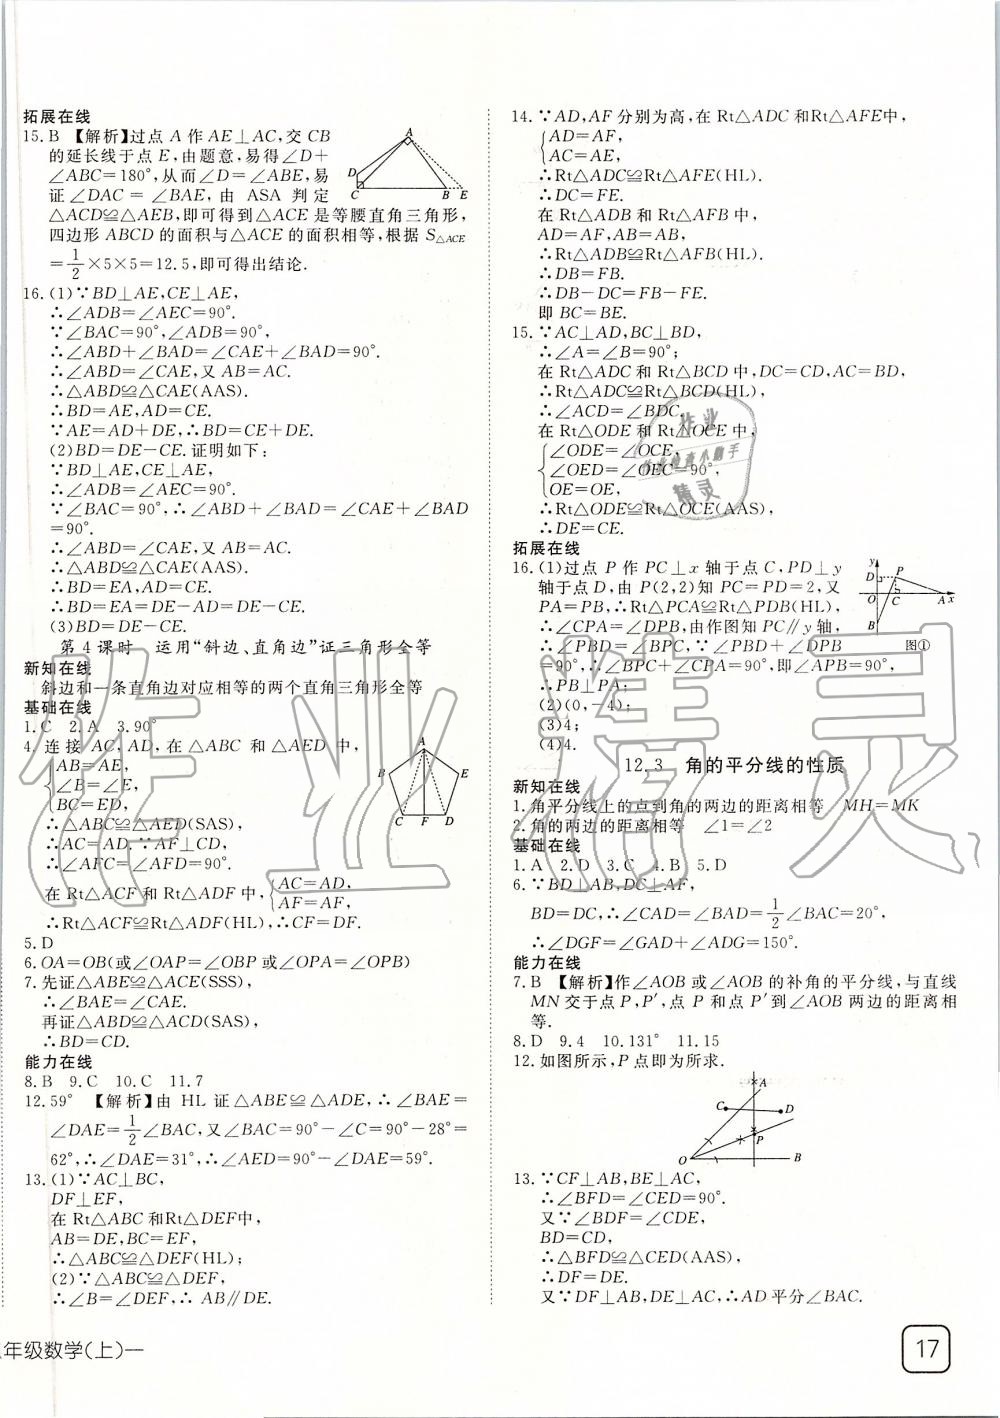 拓展在线
15.B 【解析】过点 A 作 AE⊥AC,交 CB
的延长线于点 E,由题意,易得∠D+
∠ABC=180°,从而∠D=∠ABE,易
证∠DAC=∠BAE,由 ASA 判定
△ACD≌△AEB,即可得到△ACE 是等腰直角三角形,
四边形 ABCD 的面积与△ACE 的面积相等,根据 S△ACE
=1/2×5×5=12.5,即可得出结论.
D
A
C
B
E
16.(1)∵BD⊥AE,CE⊥AE,
∴∠ADB=∠AEC=90°.
∵∠BAC=90°,∠ADB=90°,
∴∠ABD+∠BAD=∠CAE+∠BAD=90°.
∴∠ABD=∠CAE,又 AB=AC.
∴△ABD≌△CAE(AAS).
∴BD=AE,AD=CE.
∵AE=AD+DE,∴BD=CE+DE.
(2)BD=DE-CE.证明如下:
∵BD⊥AE,CE⊥AE,
∴∠ADB=∠AEC=90°.
∵∠BAC=90°,∴∠ABD+∠BAD=∠CAE+∠BAD
=90°.
∴∠ABD=∠CAE,又 AB=AC.
∴△ABD≌△CAE(AAS).
∴BD=EA,AD=CE.
∴BD=EA=DE-AD=DE-CE.
(3)BD=DE-CE.
第 4 课时 运用“斜边、直角边”证三角形全等
新知在线
斜边和一条直角边对应相等的两个直角三角形全等
基础在线
1.C 2.A 3.90°
4.连接 AC,AD,在△ABC 和△AED 中,
AB=AE,
∠B=∠E,
BC=ED,
∴△ABC≌△AED(SAS),
∴AC=AD,∵AF⊥CD,
∴∠AFC=∠AFD=90°.
在 Rt△ACF 和 Rt△ADF 中,
AC=AD,
AF=AF,
∴Rt△ACF≌Rt△ADF(HL),∴CF=DF.
A
B
E
C F D
5.D
6.OA=OB(或∠OAP=∠OBP 或∠OPA=∠OPB)
7.先证△ABE≌△ACE(SSS),
∴∠BAE=∠CAE.
再证△ABD≌△ACD(SAS),
∴BD=CD.
能力在线
8.B 9.C 10.C 11.7
12.59° 【解析】由 HL 证△ABE≌△ADE,∴∠BAE=
∠DAE=1/2∠BAC,又∠BAC=90°-∠C=90°-28°=
62°,∴∠DAE=31°,∴∠AED=90°-∠DAE=59°.
13.(1)∵AC⊥BC,
DF⊥EF,
在 Rt△ABC 和Rt△DEF中,
AB=DE,BC=EF,
∴△ABC≌△DEF(HL);
(2)∵△ABC≌△DEF,
∴∠B=∠DEF,∴ AB∥DE.
年级数学(上)一
14.∵AD,AF 分别为高,在 Rt△ADC 和Rt△AFE中,
AD=AF,
AC=AE,
∴Rt△ADC≌Rt△AFE(HL).
∴DC=FE.
在 Rt△ADB 和 Rt△AFB 中,
AD=AF,AB=AB,
∴Rt△ADB≌Rt△AFB(HL).
∴DB=FB.
∴DB-DC=FB-FE.
即 BC=BE.
15.∵AC⊥AD,BC⊥BD,
∴∠A=∠B=90°;
在 Rt△ADC 和 Rt△BCD 中,DC=CD,AC=BD,
∴Rt△ADC≌Rt△BCD(HL),
∴∠ACD=∠BDC,
在 Rt△ODE 和 Rt△OCE 中,
∠ODE=∠OCE,
∠OED=∠OEC=90°,
OE=OE,
∴Rt△ODE≌Rt△OCE(AAS),
∴DE=CE.
拓展在线
16.(1)过点 P 作 PC⊥x 轴于点 C,PD⊥y
轴于点 D,由 P(2,2)知 PC=PD=2,又
PA=PB,∴Rt△PCA≌Rt△PDB(HL),
∴∠CPA=∠DPB,由作图知 PC∥y 轴,
∴∠PBD=∠BPC.∵∠PBD+∠DPB
=90°,∴∠BPC+∠CPA=90°,即∠APB=90°,
∴PB⊥PA;
(2)(0,-4);
(3)4;
(4)4.
y
D
P
O C A x
B
图①
12.3 角的平分线的性质
新知在线
1.角平分线上的点到角的两边的距离相等 MH=MK
2.角的两边的距离相等 ∠1=∠2
基础在线
1.A 2.D 3.C 4.B 5.D
6.∵BD⊥AB,DC⊥AF,
BD=DC,∴∠CAD=∠BAD=1/2∠BAC=20°,
∴∠DGF=∠GAD+∠ADG=150°.
能力在线
7.B 【解析】作∠AOB 或∠AOB 的补角的平分线,与直线
MN 交于点 P,P′,点 P 和点 P′到∠AOB 两边的距离相
等.
8.D 9.4 10.131° 11.15
12.如图所示,P 点即为所求.
A
C
D
P
O
B
13.∵CF⊥AB,BE⊥AC,
∴∠BFD=∠CED=90°.
又∵∠BDF=∠CDE,
BD=CD,
∴△BFD≌△CED(AAS),
∴DF=DE.
又∵DF⊥AB,DE⊥AC,∴AD 平分∠BAC.
17
作业精灵
作业
作业检查小助手
精灵